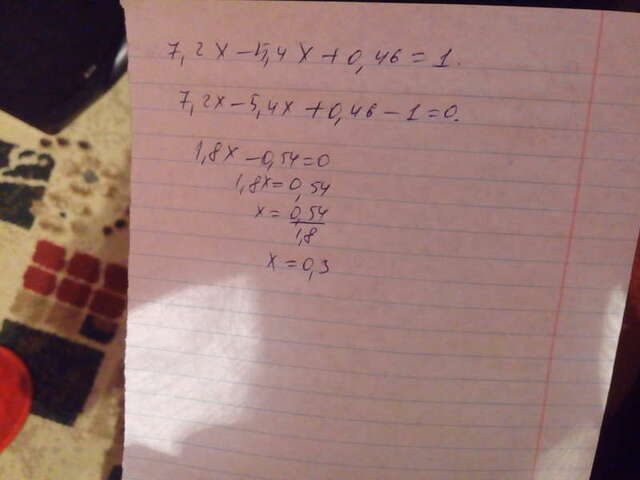 7,2x-5,4x+0,46=1.
7,2x-5,4x+0,46-1=0.
1,8x-0,54=0
1,8x=0,54
x=0,54
1,8
x=0,3